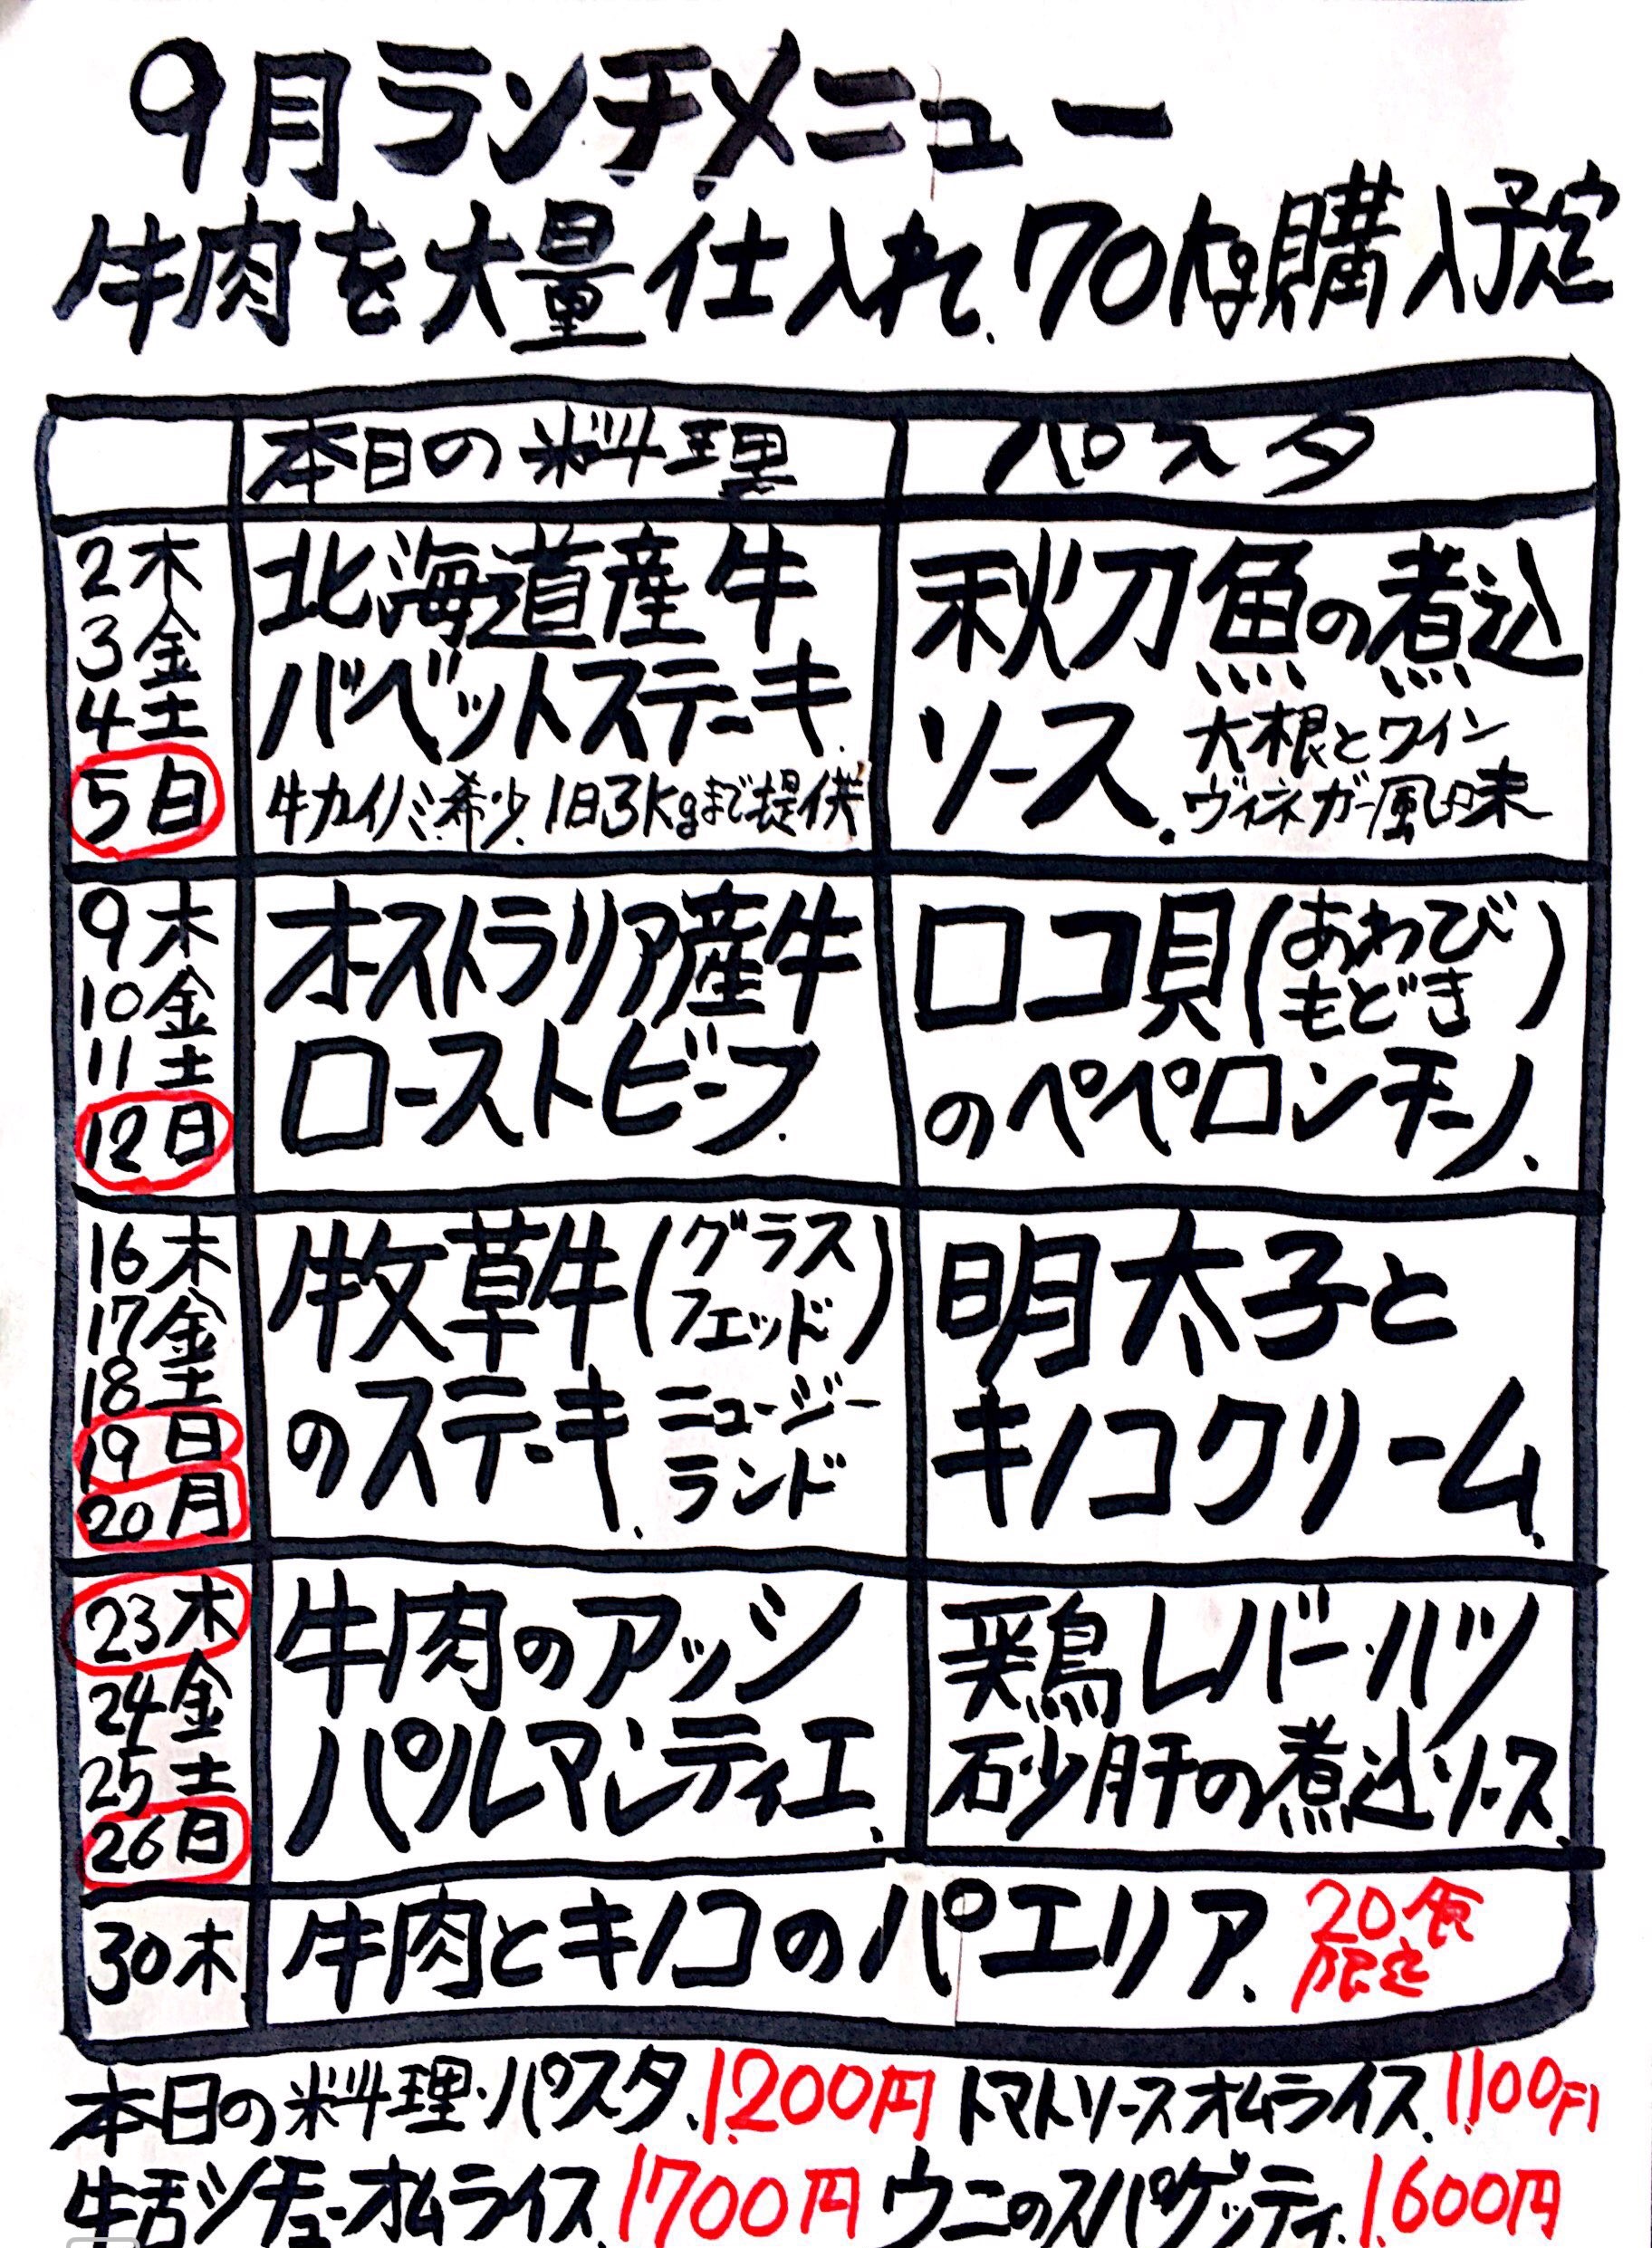 9月ランチメニュー
牛肉を大量仕入れ、70kg購入予定
本日の料理
パスタ
2木
3金
4土
5日
北海道産牛
バベットステーキ
牛カイノミ希少、1日3kgまで提供
秋刀魚の煮込
ソース、
大根とワイン
ヴィネガー風味
9木
10金
11土
12日
オーストラリア産牛
ローストビーフ、
ロコ貝(あわびもどき)
のペペロンチーノ、
16木
17金
18土
19日
20月
牧草牛(グラスフェッド)
のステーキ、
ニュージー
ランド
明太子と
キノコクリーム、
23木
24金
25土
26日
牛肉のアッシ
パルマンティエ、
鶏レバー・ハツ
砂肝の煮込ソース、
30木
牛肉とキノコのパエリア、
20食
限定
本日の料理・パスタ、1200円 トマトソースオムライス、1100円
牛舌シチューオムライス、1700円 ウニのスパゲッティ、1600円